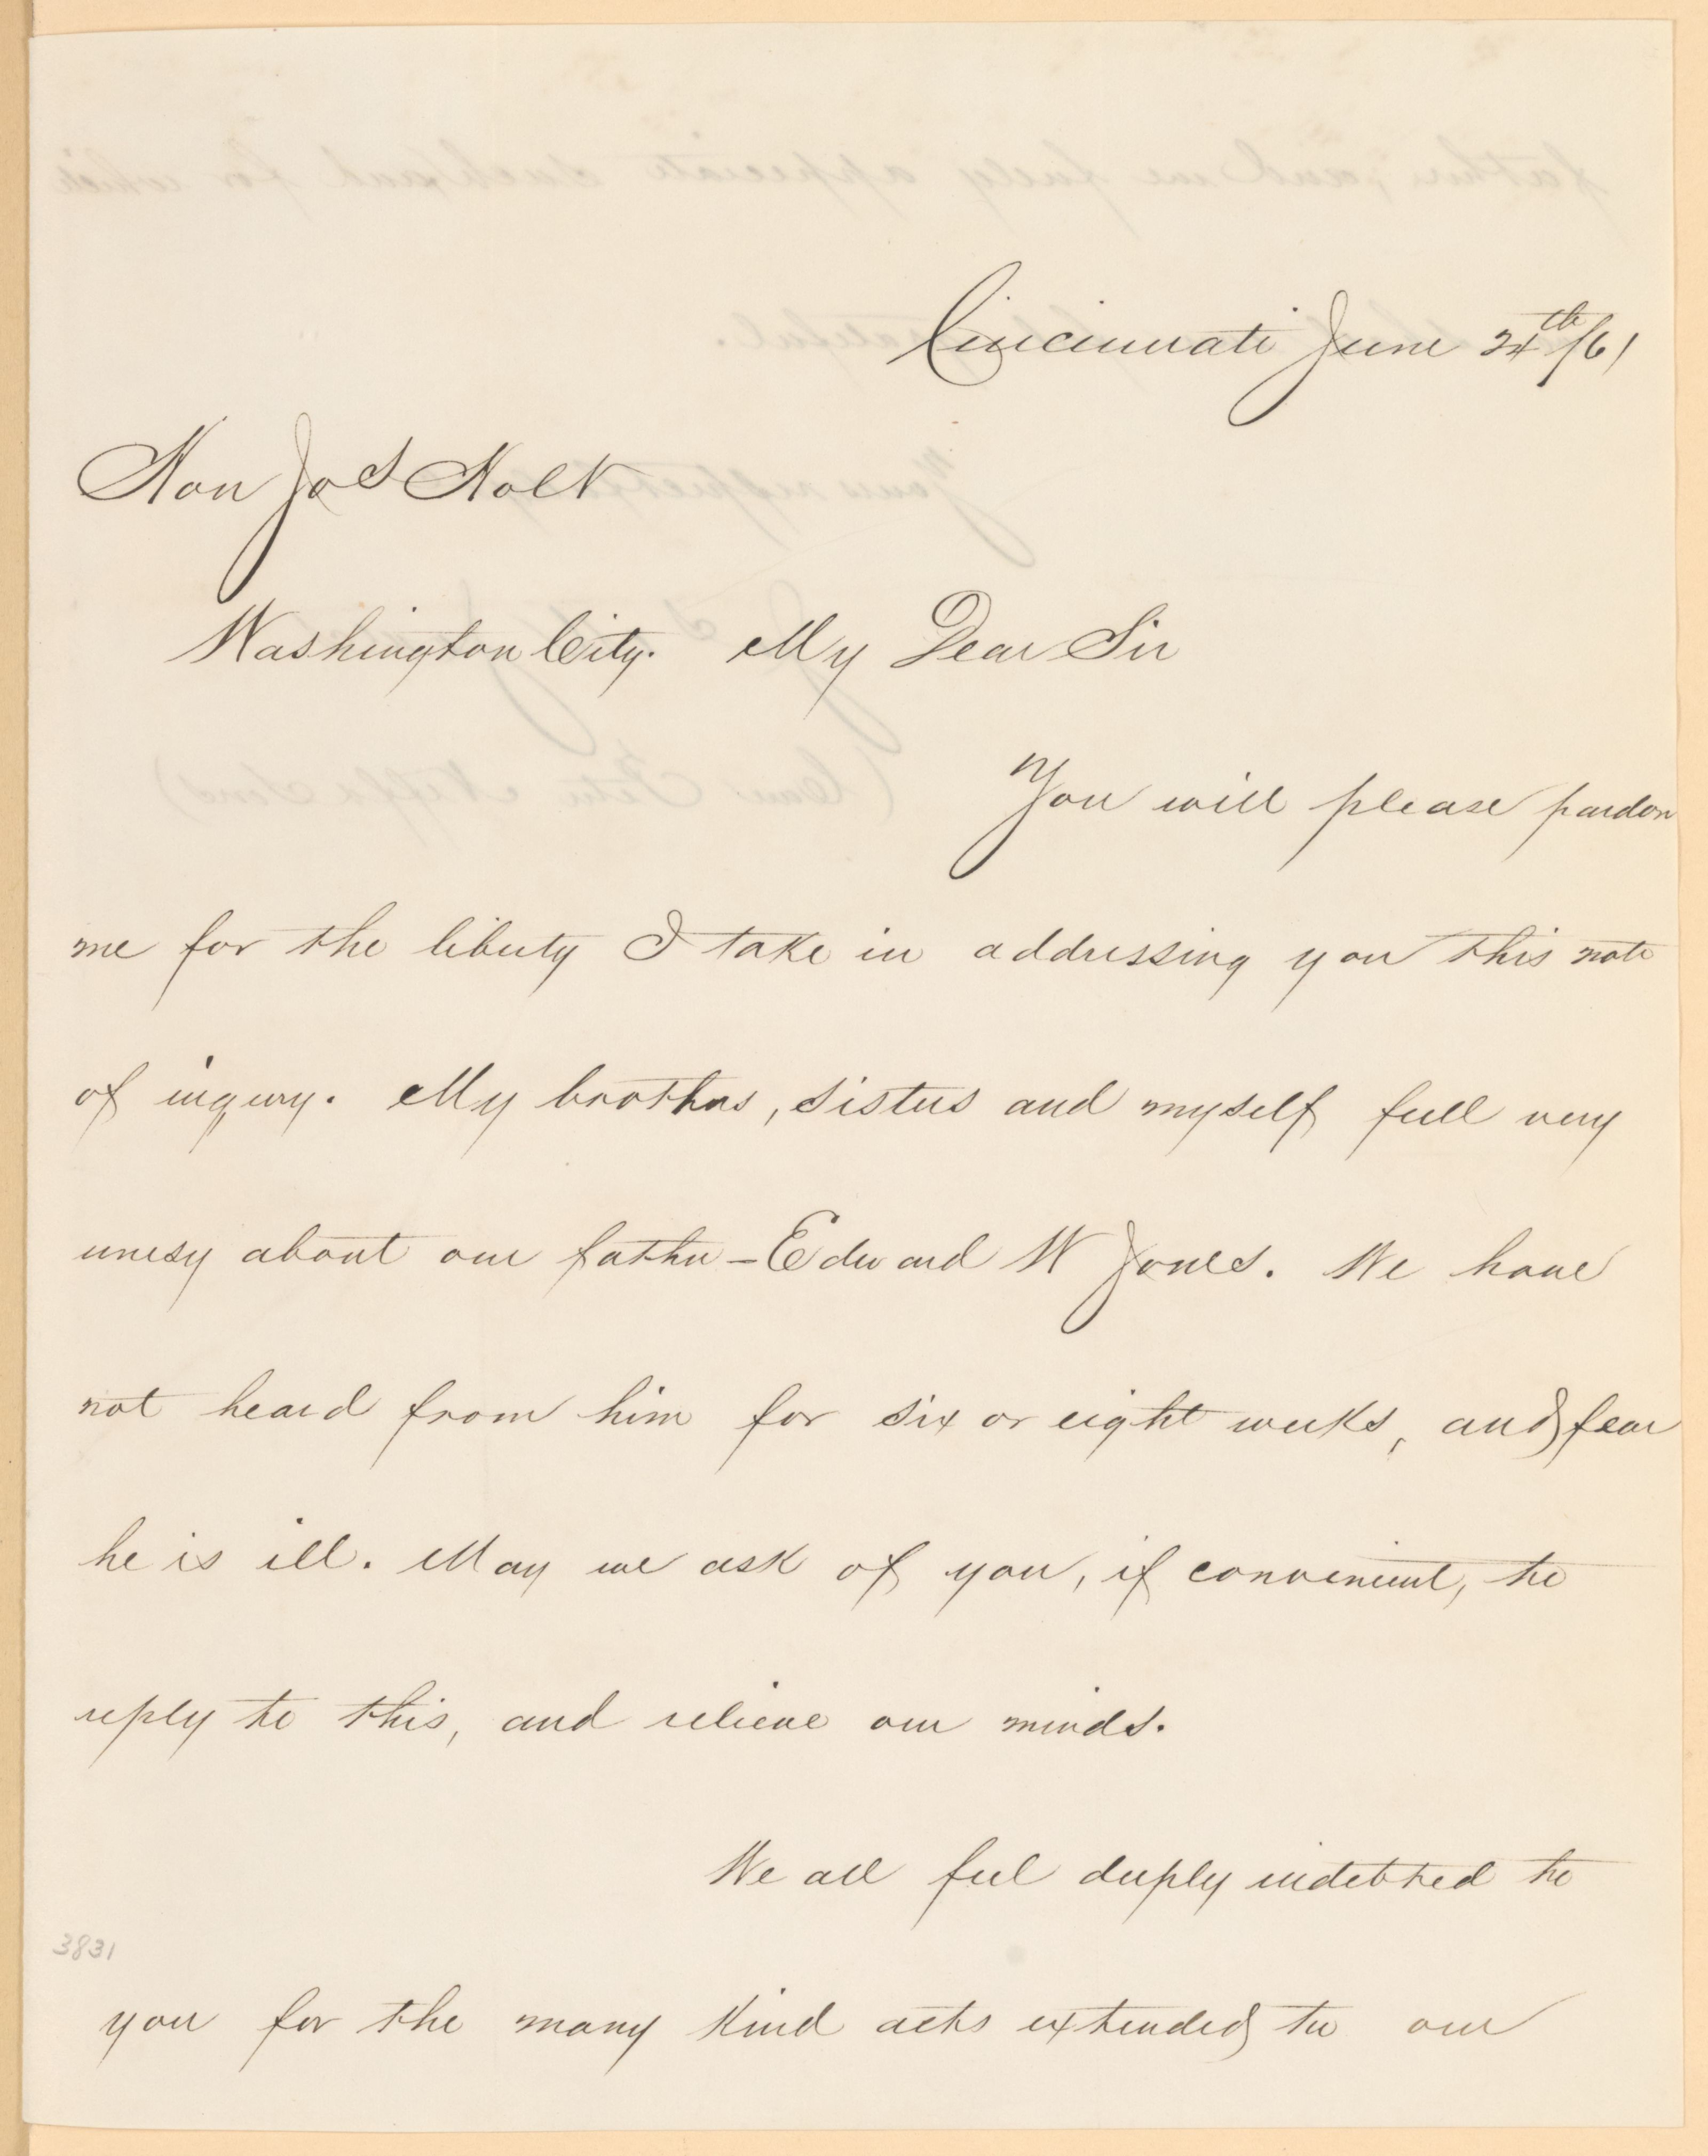 Cincinnati June 24th/61
Hon Jos Holt
Washington City. My Dear Sir
You will please pardon
me for the liberty I take in addressing you this note
of inquiry. My brothers, sisters and myself feel very
unesy about our father - Edward W Jones. We have
not heard from him for six or eight weeks, and fear
he is ill. May we ask of you, if convenient, to
reply to this, and relieve our minds.
We all feel deeply indebted to
3831
you for the many kind acts extended to our